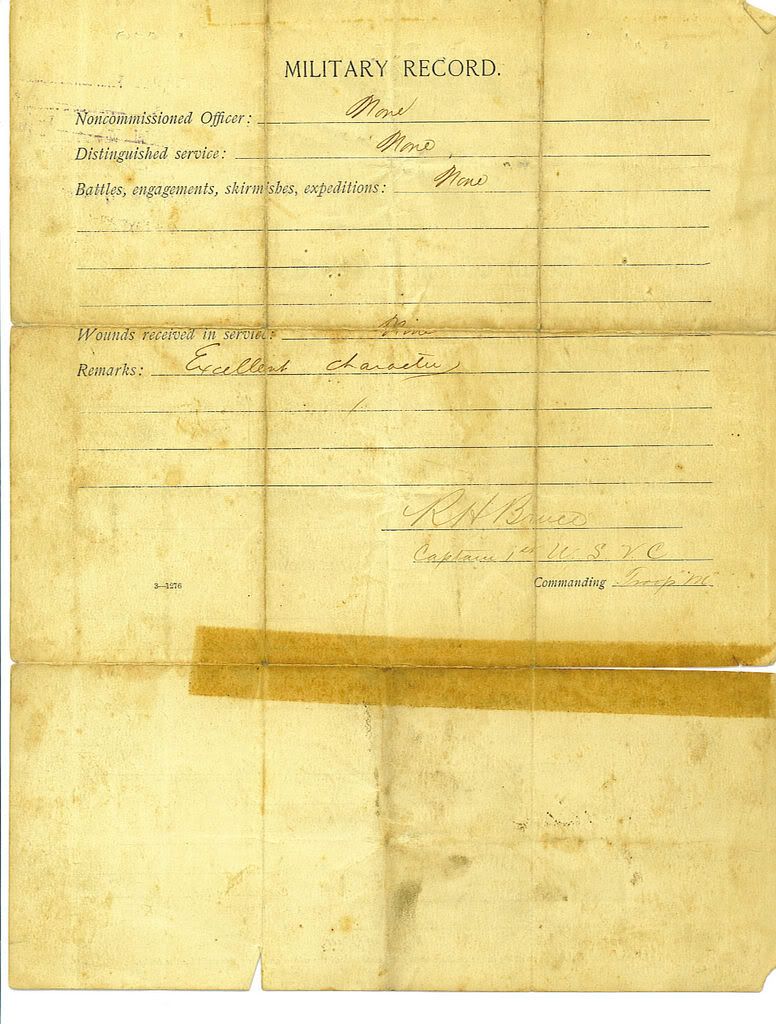 MILITARY RECORD.
Noncommissioned Officer: None
Distinguished service: None
Battles, engagements, skirmishes, expeditions: None
Wounds received in service: None
Remarks: Excellent character
R H Bruce
Captain 1st U. S. V. C
Commanding Troop "M"
3—1276